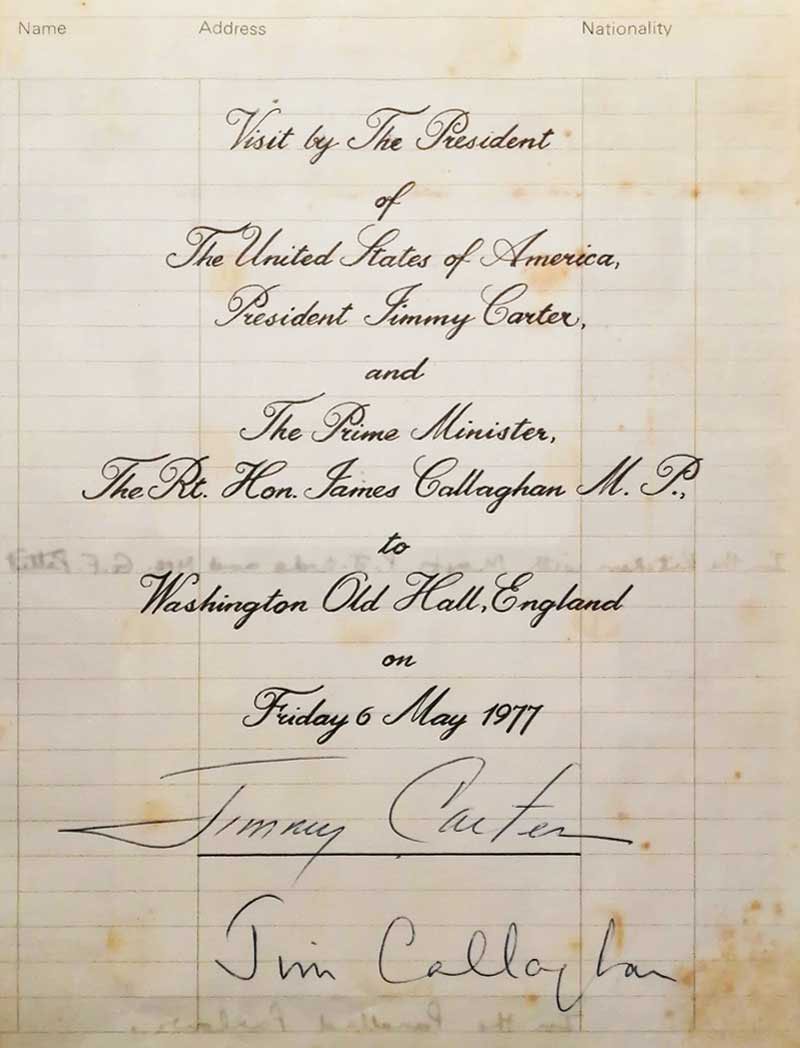 Name Address Nationality
Visit by The President
of
The United States of America,
President Jimmy Carter,
and
The Prime Minister,
The Rt. Hon. James Callaghan M. P.,
to
Washington Old Hall, England
on
Friday 6 May 1977
Jimmy Carter
Jim Callaghan